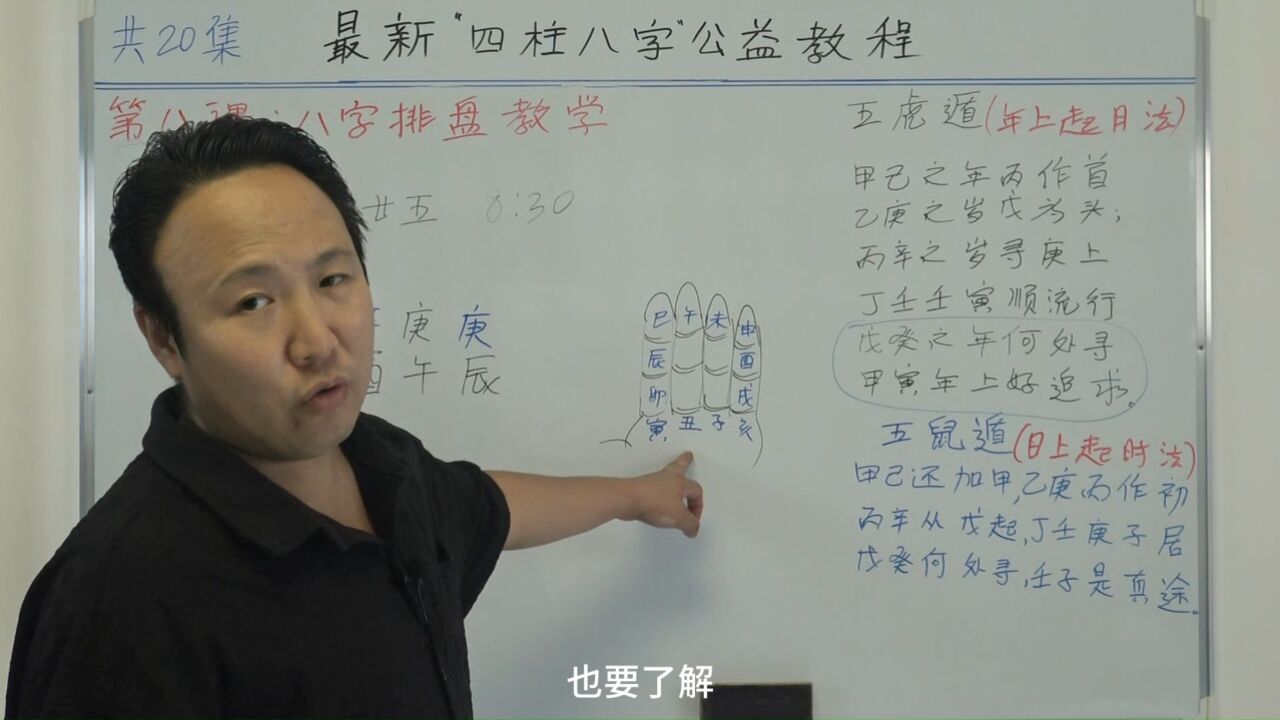 共20集 最新"四柱八字"公益教程
第八课:八字排盘教学
廿五 8:30
庚 庚
酉 午 辰
巳 午 未 申
辰 酉
卯 戌
寅 丑 子 亥
五虎遁(年上起月法)
甲己之年丙作首
乙庚之岁戊为头;
丙辛之岁寻庚上
丁壬壬寅顺流行
戊癸之年何处寻
甲寅年上好追求。
五鼠遁(日上起时法)
甲己还加甲,乙庚丙作初
丙辛从戊起,丁壬庚子居
戊癸何处寻,壬子是真途。
也要了解